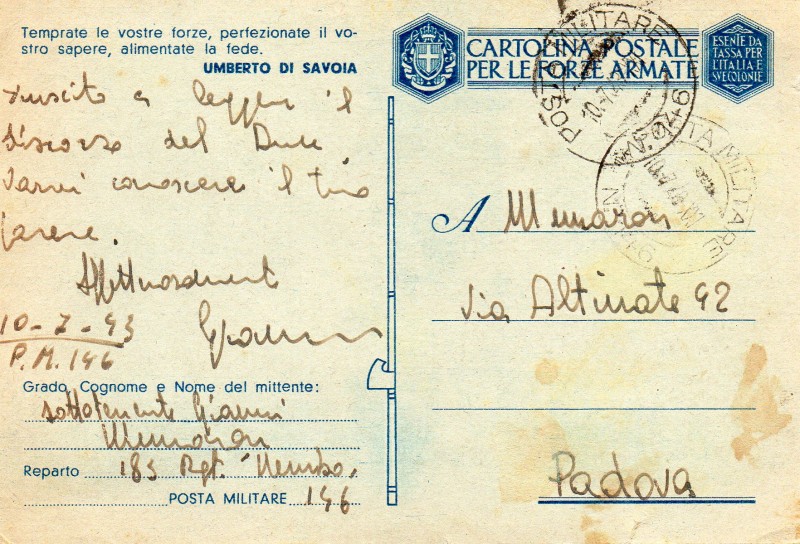 Temprate le vostre forze, perfezionate il vo-
stro sapere, alimentate la fede.
UMBERTO DI SAVOIA
CARTOLINA POSTALE
PER LE FORZE ARMATE
ESENTE DA
TASSA PER
L'ITALIA E
SVE COLONIE
POSTA MILITARE N. 146
10-7-
POSTA MILITARE
riuscito a leggere il
discorso del Duce
farmi conoscere il tuo
parere.
Affettuosamente
Gianni
10-7-43
P.M. 146
Grado, Cognome e Nome del mittente:
sottotenente Gianni
Menaron
Reparto 185 Rgt. Nembo,
POSTA MILITARE 146
A Menaron
Via Altinate 92
Padova